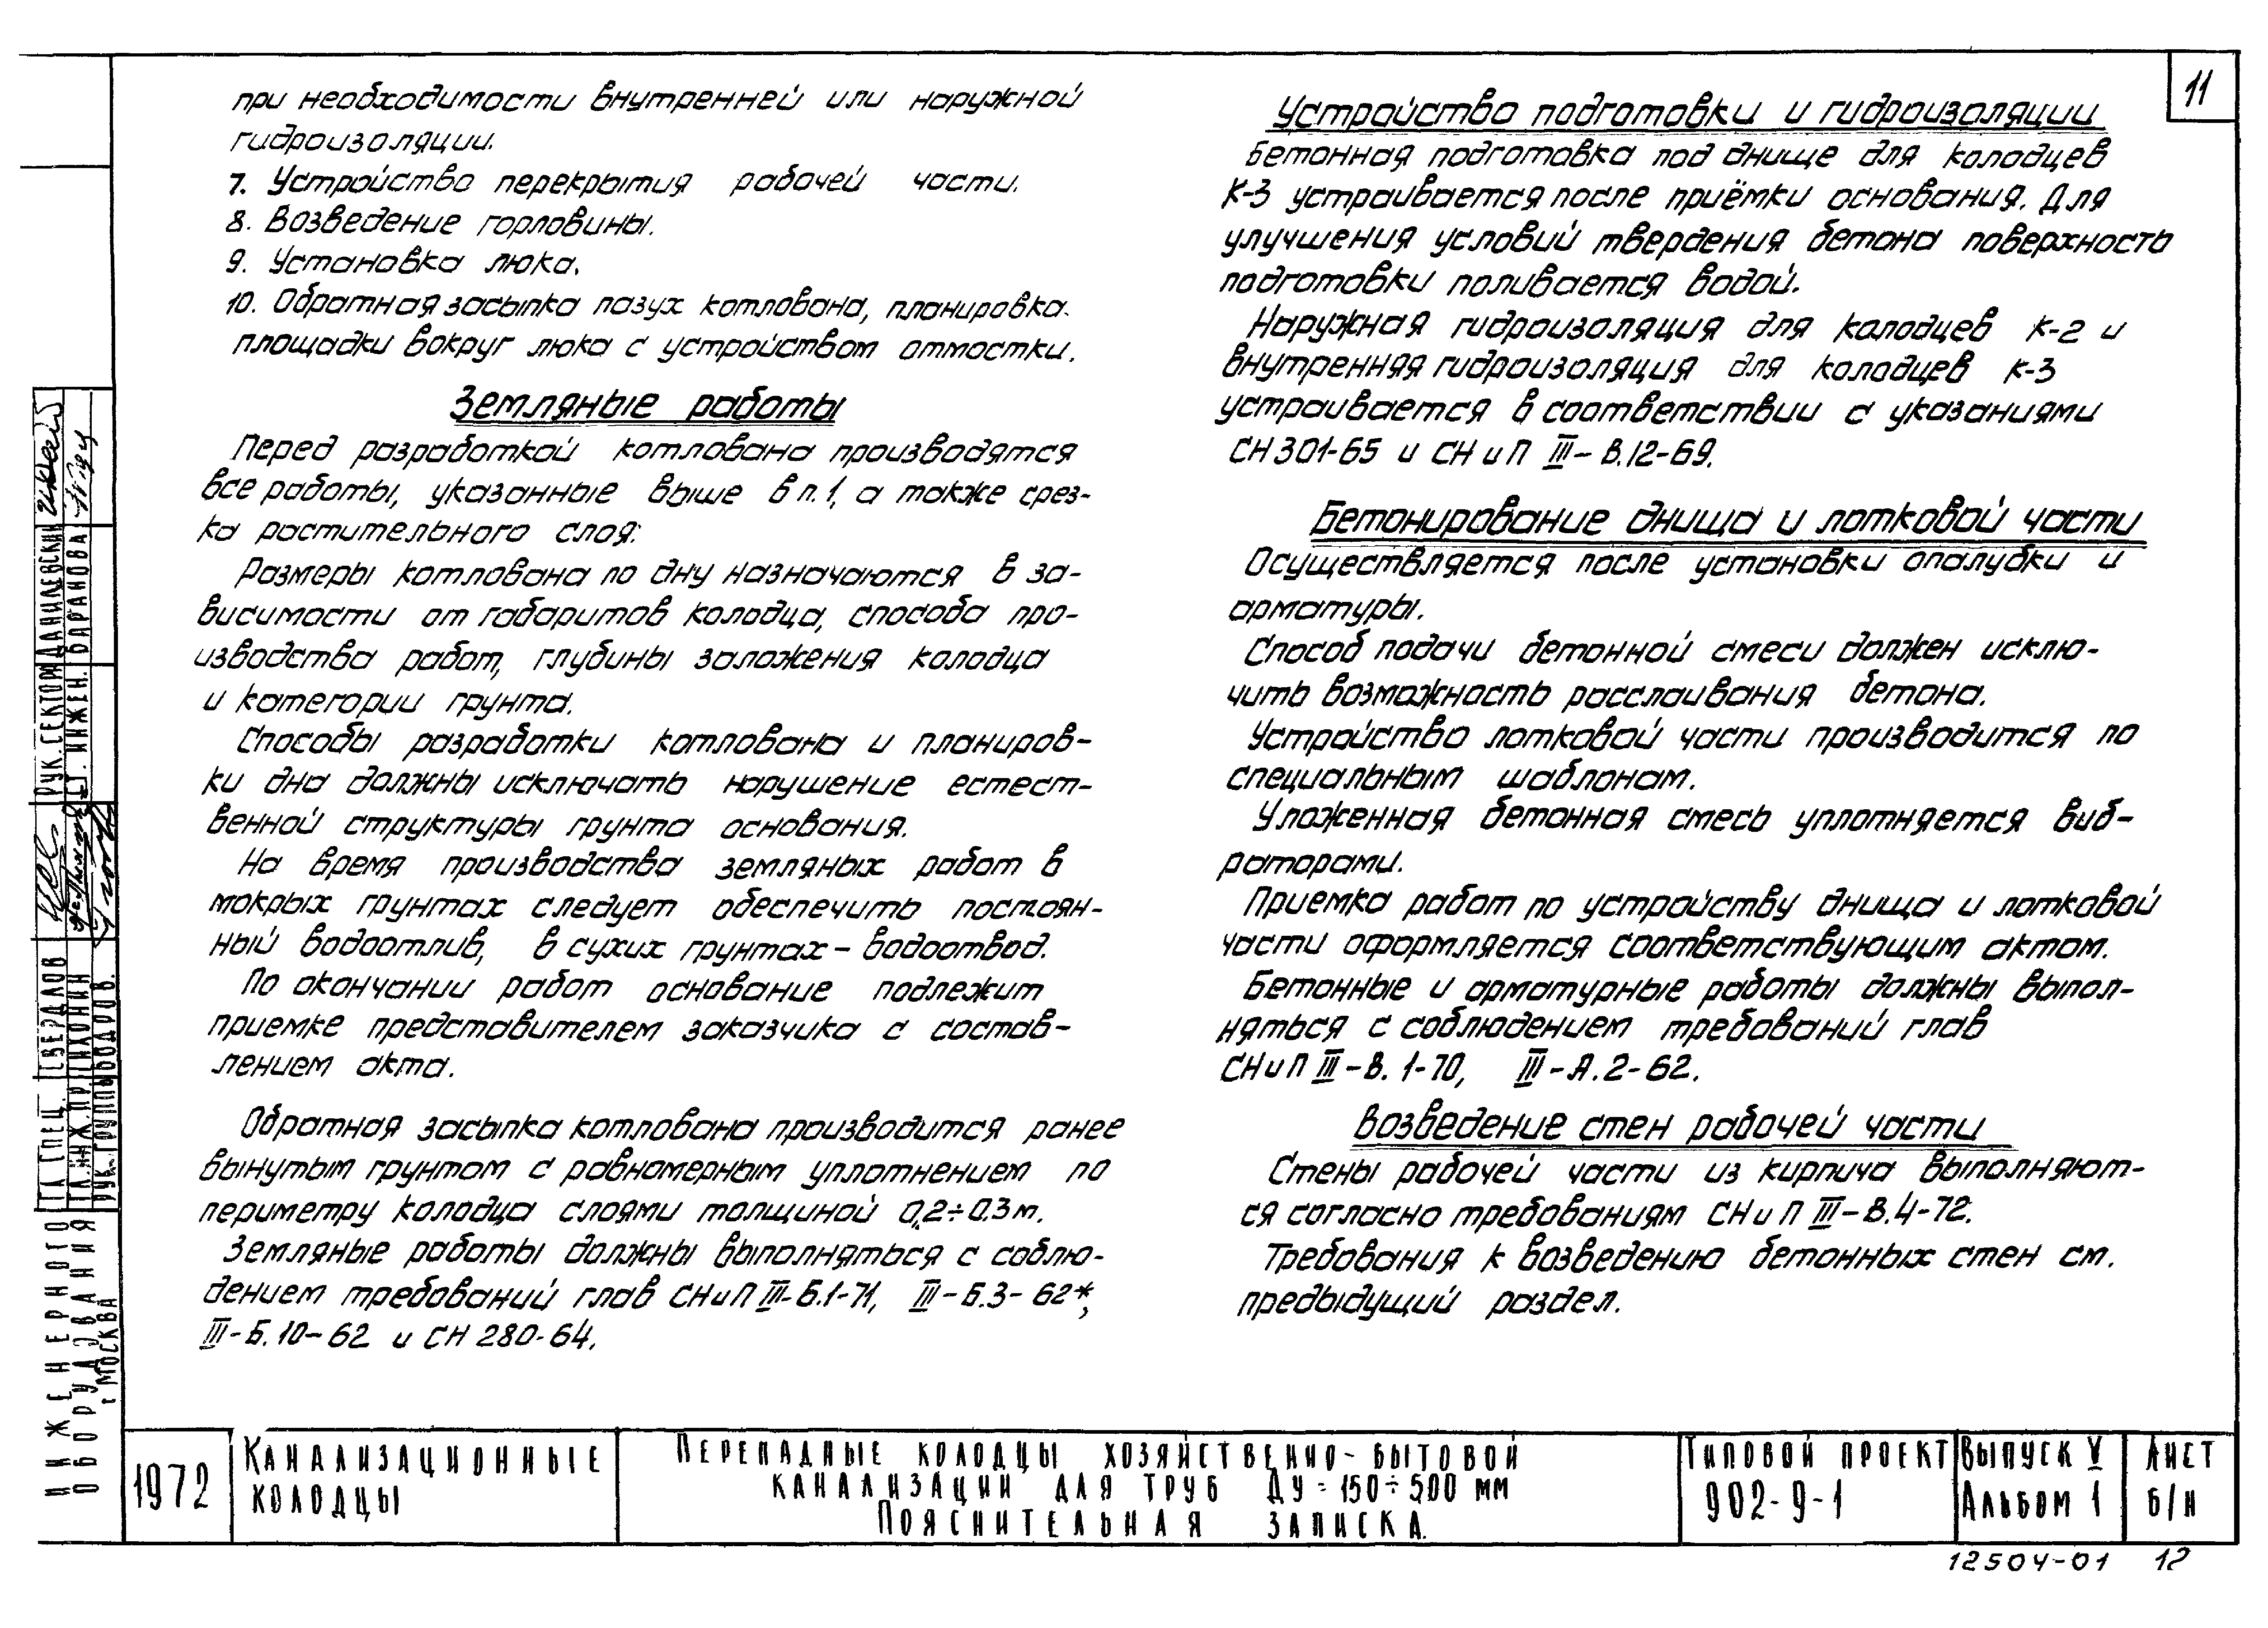 11
при необходимости внутренней или наружной
гидроизоляции.
7. Устройство перекрытия рабочей части.
8. Возведение горловины.
9. Установка люка.
10. Обратная засыпка пазух котлована, планировка
площадки вокруг люка с устройством отмостки.
Земляные работы
Перед разработкой котлована производятся
все работы, указанные выше в п.1, а также срез-
ка растительного слоя.
Размеры котлована по дну назначаются в за-
висимости от габаритов колодца, способа про-
изводства работ, глубины заложения колодца
и категории грунта.
Способы разработки котлована и планиров-
ки дна должны исключать нарушение естест-
венной структуры грунта основания.
На время производства земляных работ в
мокрых грунтах следует обеспечить постоян-
ный водоотлив, в сухих грунтах - водоотвод.
По окончании работ основание подлежит
приемке представителем заказчика с состав-
лением акта.
Обратная засыпка котлована производится ранее
вынутым грунтом с равномерным уплотнением по
периметру колодца слоями толщиной 0,2÷0.3м.
Земляные работы должны выполняться с соблю-
дением требований глав СНиП III-Б.1-71, III-Б.3-62*,
III-Б.10-62 и СН 280-64.
Устройство подготовки и гидроизоляции
Бетонная подготовка под днище для колодцев
К-3 устраивается после приёмки основания. Для
улучшения условий твердения бетона поверхность
подготовки поливается водой.
Наружная гидроизоляция для колодцев К-2 и
внутренняя гидроизоляция для колодцев К-3
устраивается в соответствии с указаниями
СН301-65 и СНиП III-В.12-69.
Бетонирование днища и лотковой части
Осуществляется после установки опалубки и
арматуры.
Способ подачи бетонной смеси должен исклю-
чить возможность расслаивания бетона.
Устройство лотковой части производится по
специальным шаблонам.
Уложенная бетонная смесь уплотняется виб-
раторами.
Приемка работ по устройству днища и лотковой
части оформляется соответствующим актом.
Бетонные и арматурные работы должны выпол-
няться с соблюдением требований глав
СНиП III-В.1-70, III-А.2-62.
Возведение стен рабочей части
Стены рабочей части из кирпича выполняют-
ся согласно требованиям СНиП III-В.4-72.
Требования к возведению бетонных стен см.
предыдущий раздел.
РУК. СЕКТОРА ДАНИЛЕВСКИЙ
СТ. ИНЖЕН. БАРАНОВА
ГЛ СПЕЦ. СВЕРДЛОВ
ГЛ. ИНЖ. ПР. НИКОНИН
РУК. ГРУППЫ
ИНЖЕНЕРНОГО
ОБОРУДОВАНИЯ
г МОСКВА
1972
КАНАЛИЗАЦИОННЫЕ
КОЛОДЦЫ
ПЕРЕПАДНЫЕ КОЛОДЦЫ ХОЗЯЙСТВЕННО-БЫТОВОЙ
КАНАЛИЗАЦИИ ДЛЯ ТРУБ ДУ=150÷500 ММ
ПОЯСНИТЕЛЬНАЯ ЗАПИСКА.
ТИПОВОЙ ПРОЕКТ
902-9-1
ВЫПУСК V
АЛЬБОМ 1
ЛИСТ
Б/Н
12504-01 12